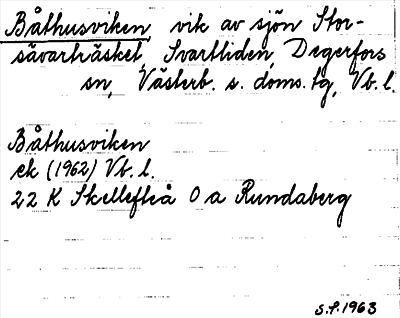 Båthusviken, vik av sjön Stor-
sävarträsket, Svarttiden, Degerfors
sn, Västerb. s. doms. tg, Vb. l.
Båthusviken
ek (1962) Vb. l.
22 K Skellefteå 0 a Rundaberg
S.P. 1963